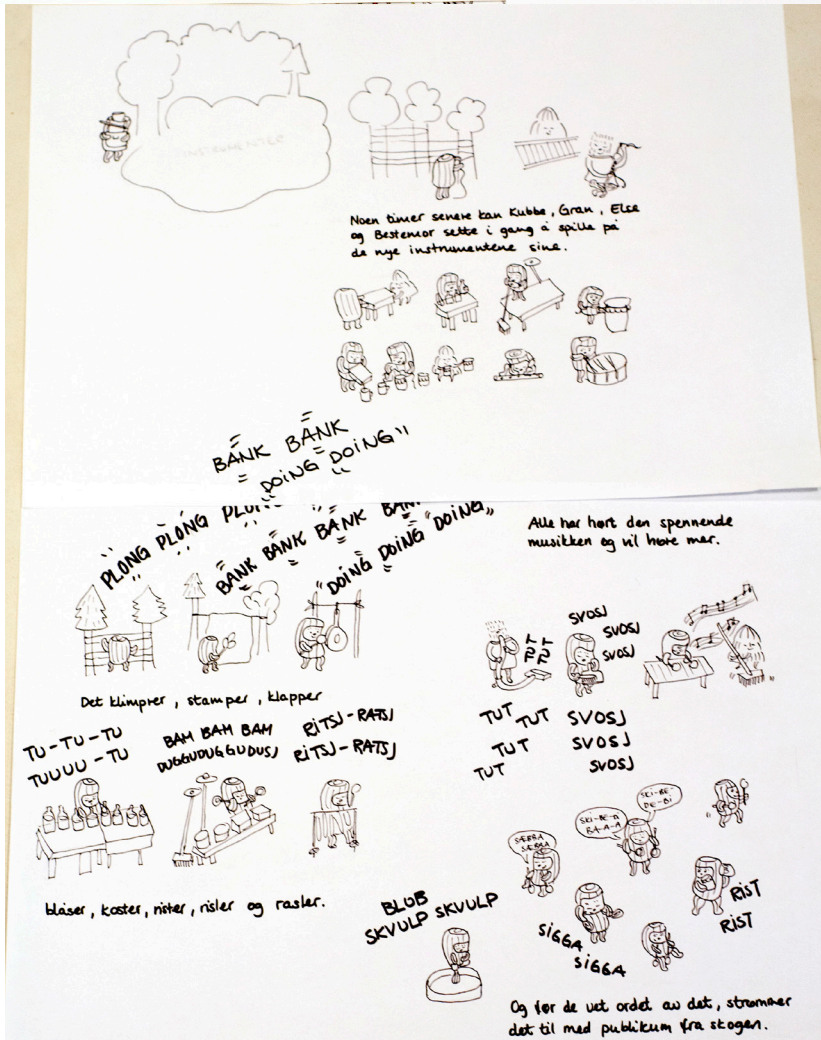 INSTRUMENTER
Noen timer senere kan Kubbe, Gran, Else
og Bestemor sette i gang å spille på
de nye instrumentene sine.
BANK BANK
DOING DOING
PLONG PLONG
BANK BANK BANK BANK
DOING DOING DOING
Det klimprer, stamper, klapper
TU-TU-TU
TUUUU-TU
BAM BAM BAM
DUGGUDUGGUDUSJ
RITSJ-RATSJ
RITSJ-RATSJ
blåser, koster, rister, risler og rasler.
BLOB
SKVULP SKVULP
Alle har hørt den spennende
musikken og vil høre mer.
TUT
TUT
TUT
SVOSJ
SVOSJ
SVOSJ
TUT
TUT
TUT
TUT
SVOSJ
SVOSJ
SVOSJ
SKI-BE-
DE-BI
SKI-BE-
BA-A-A
RIST
RIST
SIGGA
SIGGA
Og før de vet ordet av det, strømmer
det til med publikum fra skogen.